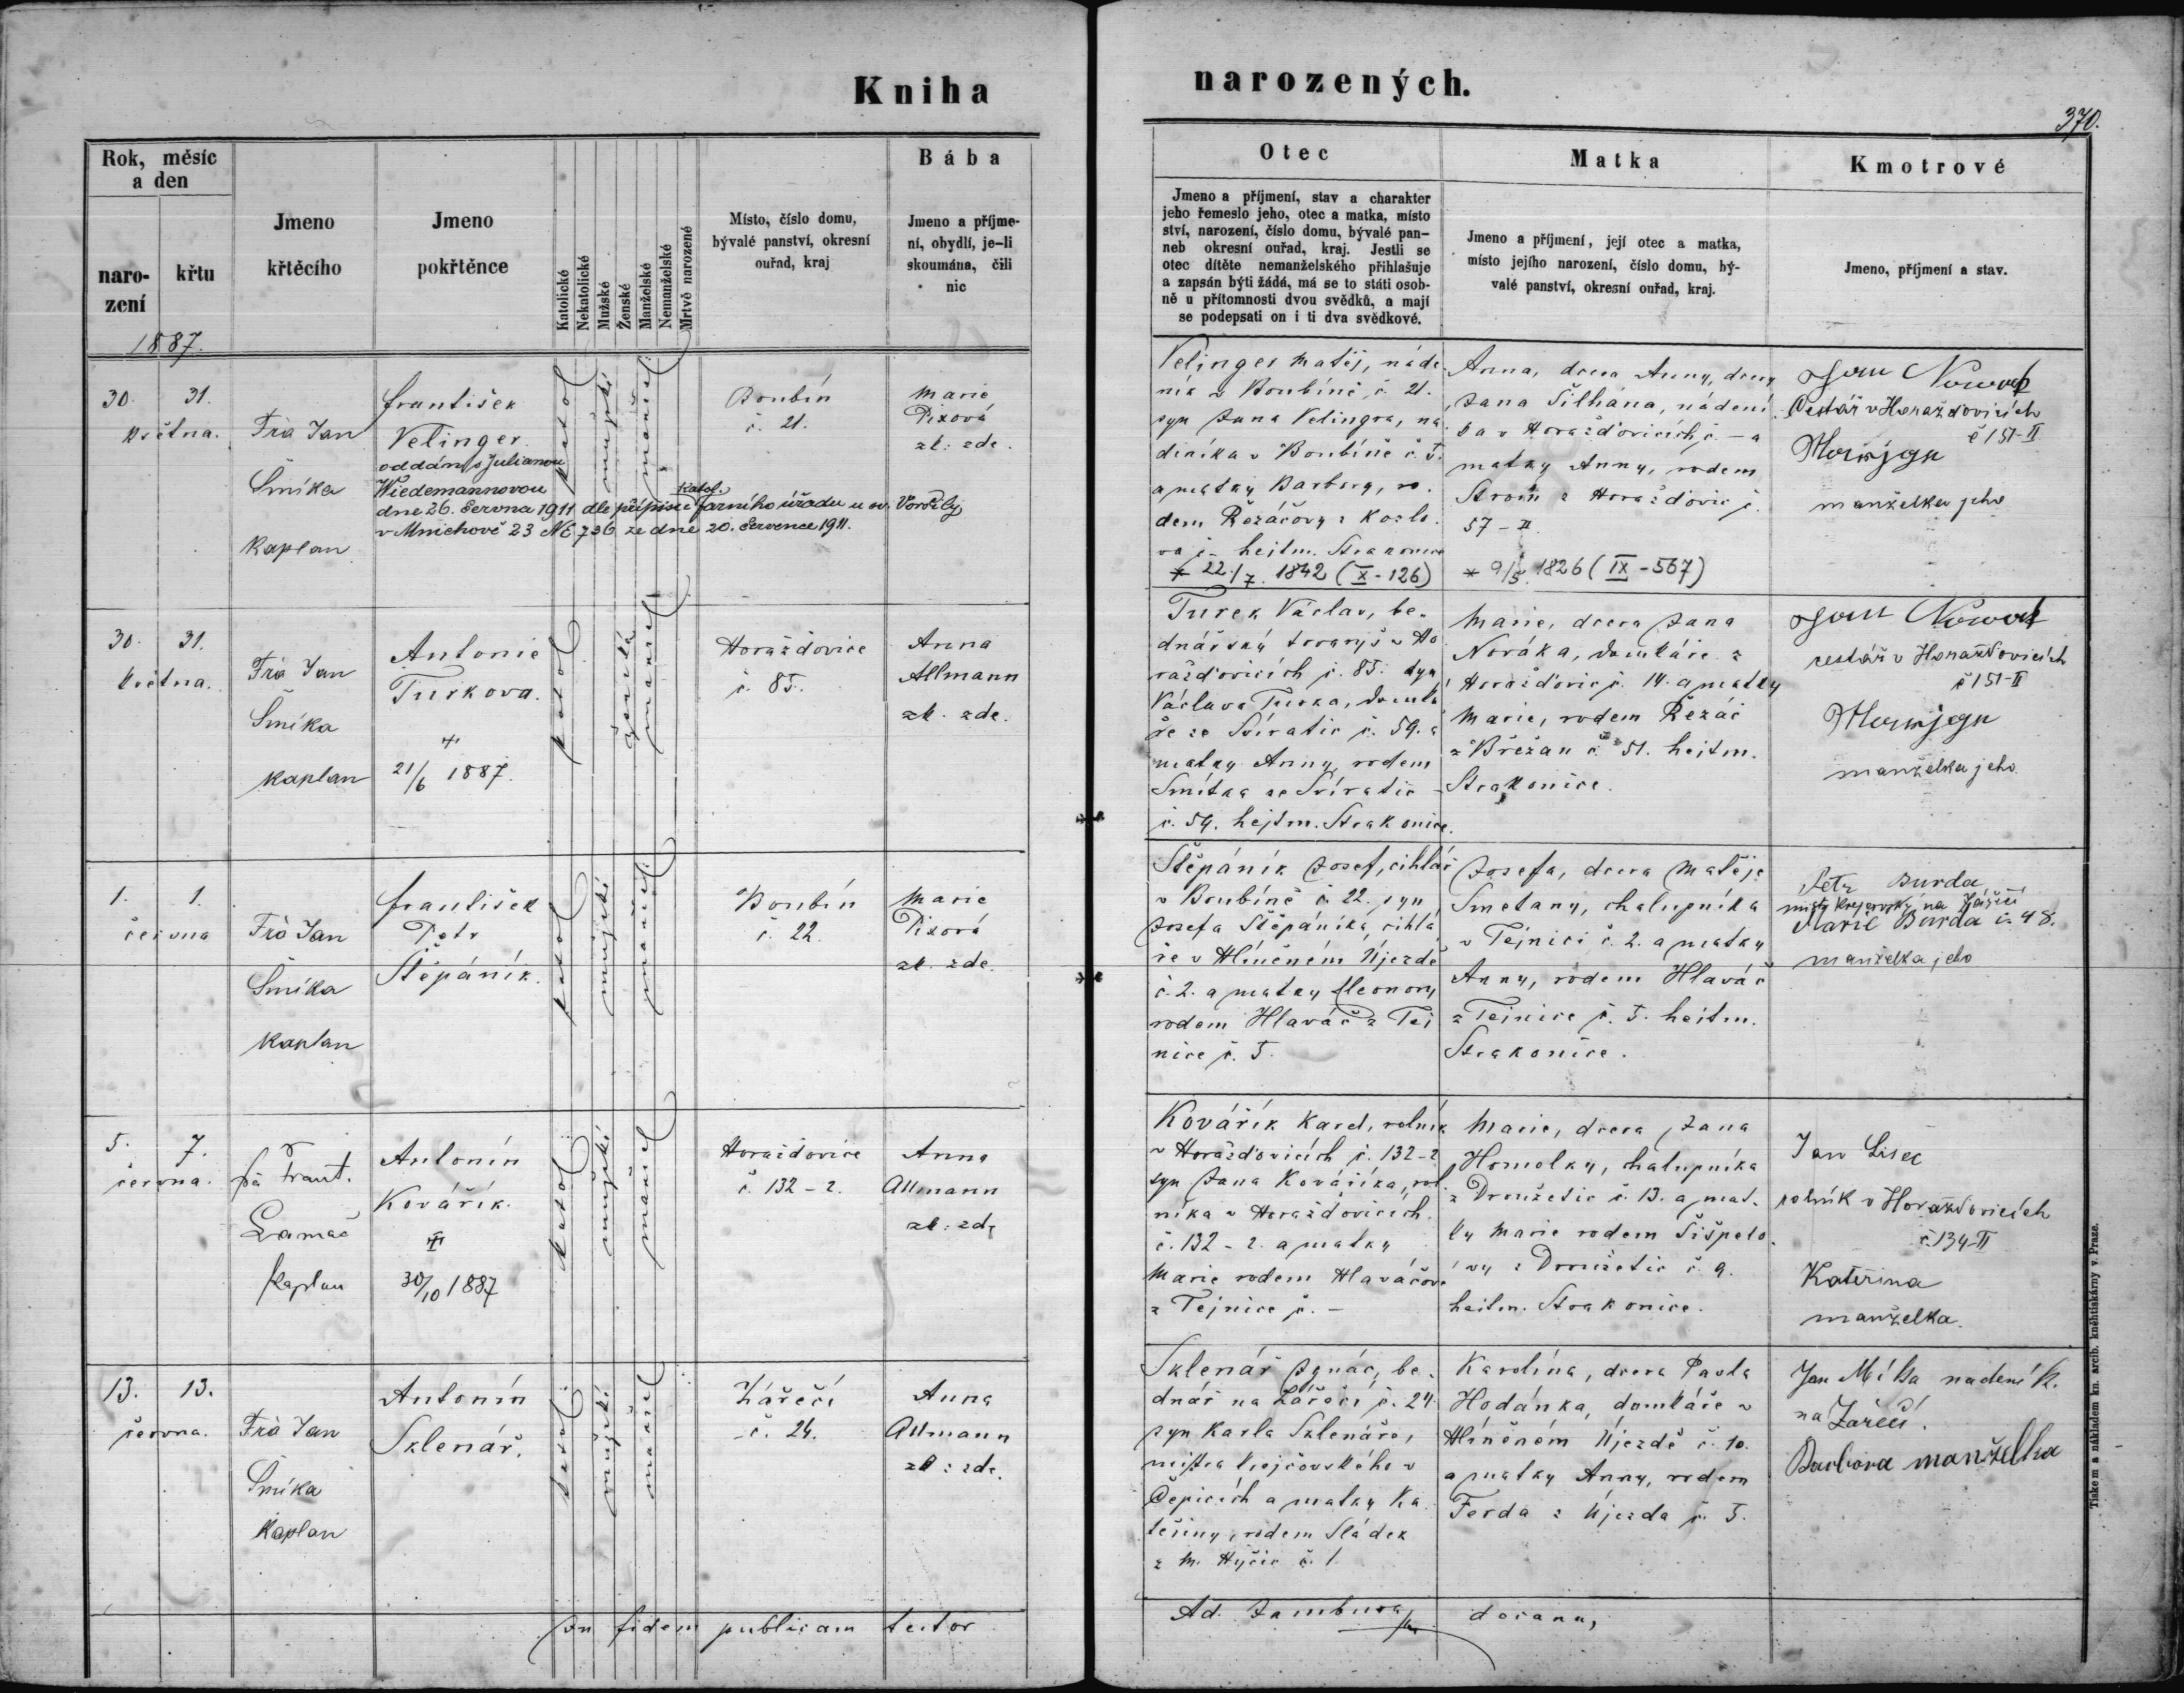 Kniha
narozených.
370.
Rok, měsíc
a den
naro-
zení
křtu
1887.
Jmeno
křtěcího
Jmeno
pokřtěnce
Katolické
Nekatolické
Mužské
Ženské
Manželské
Nemanželské
Mrtvě narozené
Místo, číslo domu,
bývalé panství, okresní
ouřad, kraj
Bába
Jmeno a příjme-
ní, obydlí, je-li
skoumána, čili
nic
Otec
Jmeno a příjmení, stav a charakter
jeho řemeslo jeho, otec a matka, místo
ství, narození, číslo domu, bývalé pan-
neb okresní ouřad, kraj. Jestli se
otec dítěte nemanželského přihlašuje
a zapsán býti žádá, má se to státi osob-
ně u přítomnosti dvou svědků, a mají
se podepsati on i ti dva svědkové.
Matka
Jmeno a příjmení, její otec a matka,
místo jejího narození, číslo domu, bý-
valé panství, okresní ouřad, kraj.
Kmotrové
Jmeno, příjmení a stav.
30. 31.
května.
Frà Jan
Šmíka
Kaplan
František
Velinger
oddán s Julianou
Wiedemannovou
katol.
dne 26. června 1911 dle přípisu farního úřadu u sv. Voršily
v Mnichově 23 NE 736 ze dne 20. července 1911.
katol
mužské
manžel
Boubín
č. 21.
Marie
Pixová
zk. zde.
Velinger Matěj, náde
ník v Boubíně, č. 21.
syn Jana Velingra, ná
deníka v Boubíně č. 5.
a matky Barbory, ro
dem Řezáčovy z Kozlo
va č. - hejtm. Strakonice
* 22./7. 1842 (X-126)
Anna, dcera Anny, dcery
Jana Šilhána, nádení
ka v Horažďovicích č. - a
matky Anny, rodem
z Horažďovic č.
57 - II
* 9/5. 1826 (IX-567)
Jan Nowak
cestář v Horažďovicích
č 151-II
manželka jeho
30. 31.
května.
Frà Jan
Šmíka
kaplan
Antonie
Turkova.
†
21/6 1887.
katol
ženské
manžel
Horažďovice
č. 85.
Anna
Allmann
zk. zde.
Turek Václav, be-
dnářský tovaryš v Ho
ražďovicích č. 85. syn
Václava Turka, domká
ře ze Svíratic č. 59. a
matky Anny, rodem
Smítka ze Svíratic
č. 54. hejtm. Strakonice.
Marie, dcera Jana
Nováka, domkáře z
Horažďovic č. 14. a matky
Marie, rodem Řezáč
z Břežan č. 51. hejtm.
Strakonice.
Jan Nowak
cestář v Horažďovicích
č 151-II
manželka jeho
1. 1.
června
Frà Jan
Šmíka
kaplan
František
Petr
Štěpáník.
katol
mužské
manžel
Boubín
č. 22.
Marie
Pixová
zk. zde.
Štěpáník Josef, cihlář
v Boubíně č. 22. syn
Josefa Štěpáníka, cihlá
ře v Hliněném Újezdě
č. 2. a matky Eleonory
rodem Hlaváč z Tej
nice č. 5.
Josefa, dcera Matěje
Smetany, chalupníka
v Tejnici č. 2. a matky
Anny, rodem Hlaváč
z Tejnice č. 5. hejtm.
Strakonice.
Petr Burda
mistr krejčovský na Zářečí
Marie Burda č. 48.
manželka jeho
5. 7.
června.
Frà Frant.
Lamač
kaplan
Antonín
Kovářík.
†
30/10 1887
katol
mužské
manžel
Horažďovice
č. 132 - 2.
Anna
Allmann
zk: zde
Kovářík Karel, rolník
v Horažďovicích č. 132-2
syn Jana Kováříka, rol
níka v Horažďovicích
č. 132 - 2. a matky
Marie rodem Hlaváčové
z Tejnice č. -
Marie, dcera Jana
Homolky, chalupníka
z Droužetic č. 13. a mat-
ky Marie rodem Šišpelo-
vy z Droužetic č. 9.
hejtm. Strakonice.
Jan Lisec
rolník v Horažďovicích
č. 134-II
Kateřina
manželka.
13. 13.
června.
Frà Jan
Šmíka
Kaplan
Antonín
Sklenář.
katol
mužské
manžel
Zářečí
č. 24.
Anna
Allmann
zk: zde.
Sklenář Ignác, be-
dnář na Zářečí č. 24
syn Karla Sklenáře,
mistra krejčovského v
Čepicích a matky Ka
teřiny, rodem Sládek
z M. Hyčic č. 1.
Karolína, dcera Pavla
Hodánka, domkáře v
Hliněném Újezdě č. 10.
a matky Anny, rodem
Ferda z Újezda č. 3.
Jan Míka nadeník.
na Zářečí.
Barbora manželka
In fidem publicam testor
Ad. Jambura
děkan,
Tiskem a nákladem kn. arcib. kněhtiskárny v Praze.